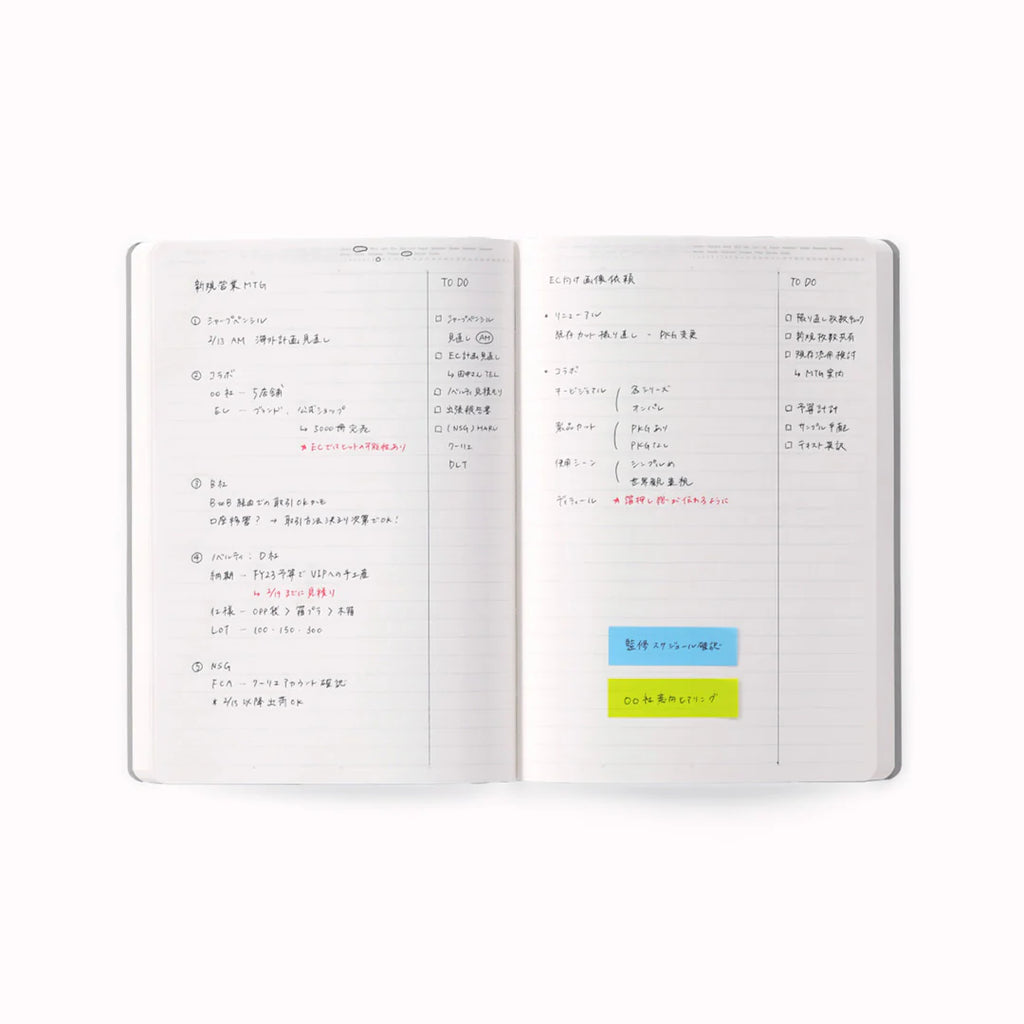 新規営業MTG
① シャープペンシル
2/13 AM 海外計画見直し
② コラボ
○○社 ー 5店舗
EC ー ブランド、公式ショップ
↳ 3000冊完売
★ECでもヒットの可能性あり
③ B社
BtoB経由での取引OKかも
口座移管? → 取引方法決まり次第でOK!
④ ノベルティ:D社
納期 ー FY23予算でVIPへの手土産
↳ 2/19までに見積り
仕様 ー OPP袋 > 箱プラ > 木箱
LOT ー 100・150・300
⑤ NSG
FCA ー クーリエアカウント確認
* 2/15以降出荷OK
TO DO
□ シャープペンシル
見直し AM
□ EC計画見直し
↳ 田中さんTEL
□ ノベルティ見積もり
□ 出張報告書
□ (NSG) MARU
クーリエ
DLT
EC向け画像依頼
・リニューアル
既存カット撮り直し ー PKG変更
・コラボ
キービジュアル ( 各シリーズ
オンパレ
製品カット ( PKGあり
PKGなし
使用シーン ( シンプルめ
世界観重視
ディティール ★箔押し感が伝わるように
TO DO
□ 撮り直し枚数チェック
□ 新規枚数共有
□ 既存流用検討
↳ MTG案内
□ 予算計計
□ サンプル手配
□ テキスト英訳
監修スケジュール確認
○○社意向ヒアリング